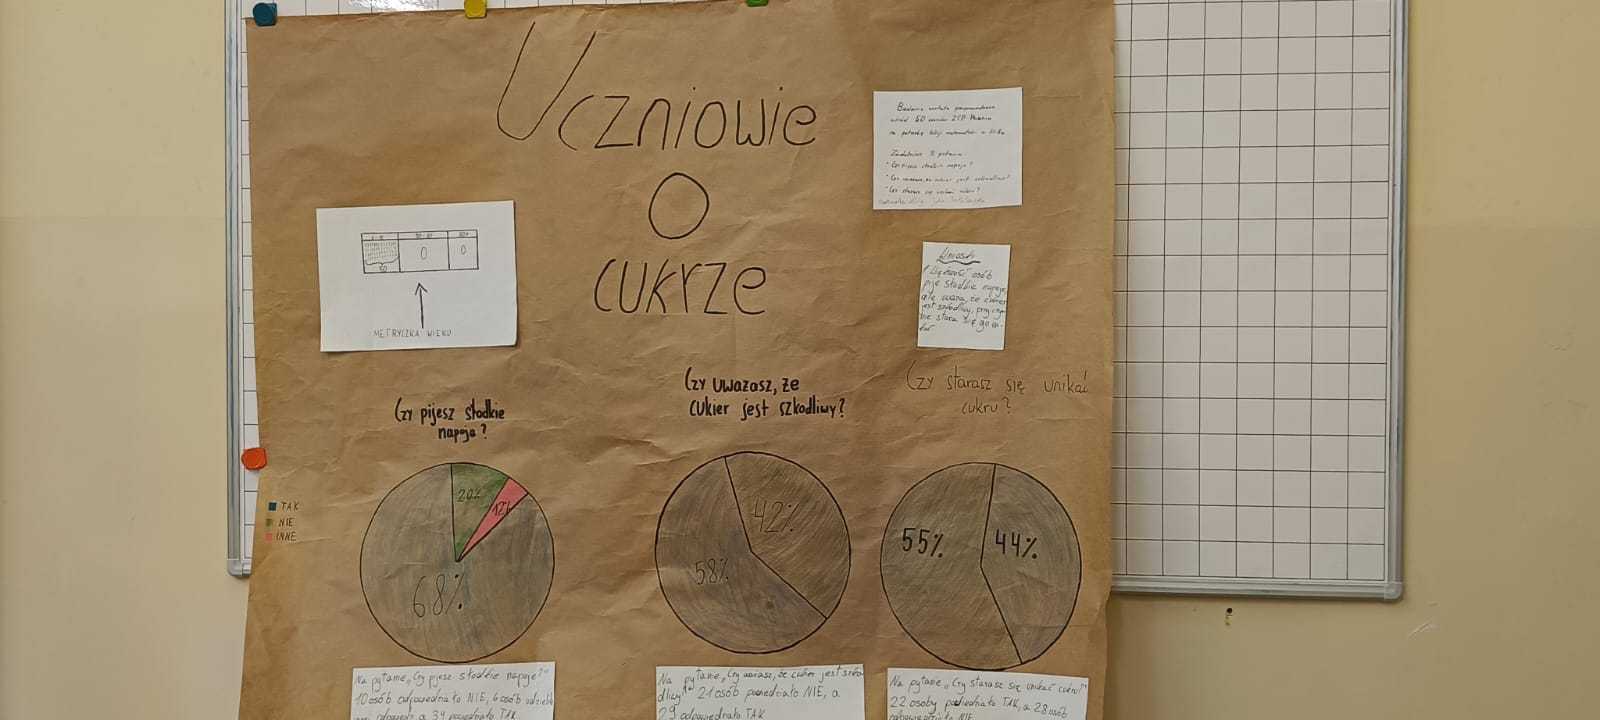 Uczniowie
o
cukrze
Badanie zostało przeprowadzone
wśród 50 uczniów
na potrzeby lekcji matematyki
Zadaliśmy 3 pytania
* Czy pijesz słodkie napoje?
* Czy uważasz, że cukier jest szkodliwy?
* Czy starasz się unikać cukru?
50
0
0
METRYCZKA WIEKU
Wnioski
Większość osób
pije słodkie napoje,
ale uważa, że cukier
jest szkodliwy, przy czym
nie stara się go
Czy pijesz słodkie
napoje?
Czy uważasz, że
cukier jest szkodliwy?
Czy starasz się unikać
cukru?
TAK
NIE
INNE
20%
12%
68%
42%
58%
55%
44%
Na pytanie „Czy pijesz słodkie napoje?"
10 osób odpowiedziało NIE, 6 osób
a 34 powiedziało TAK
Na pytanie „Czy uważasz, że cukier jest szko-
dliwy" 21 osób powiedziało NIE, a
29 odpowiedziało TAK
Na pytanie „Czy starasz się unikać cukru?"
22 osoby powiedziało TAK, a 28 osób
odpowiedziało NIE